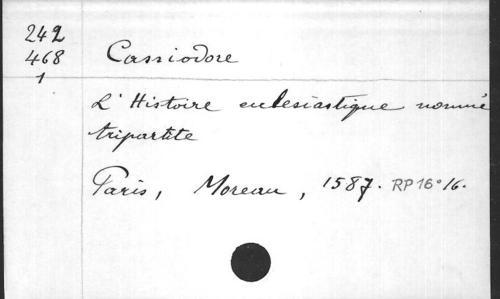 242
468
1
Cassiodore
L'Histoire ecclesiastique nommé
tripartite
Paris, Moreau, 1587. RP 16° 16.